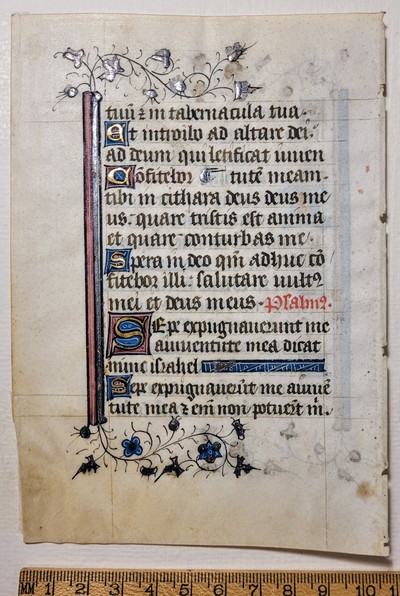 tuū ⁊ in tabernacula tua·
Et introibo ad altare dei·
ad deum qui letificat iuuen
Cōfitebor tutē meam·
tibi in cithara deus deus me
us· quare tristis est anima
et quare conturbas me·
Spera in deo qm̄ adhuc cō
fitebor illi· salutare uultꝰ
mei et deus meus· Psalmꝰ.
Sepe expugnauerunt me
a iuuentute mea dicat
nunc israhel
Sepe expugnauerūt me a iuuē
tute mea ⁊ em̄ non potuerūt m̄.
MM 1 2 3 4 5 6 7 8 9 10 1